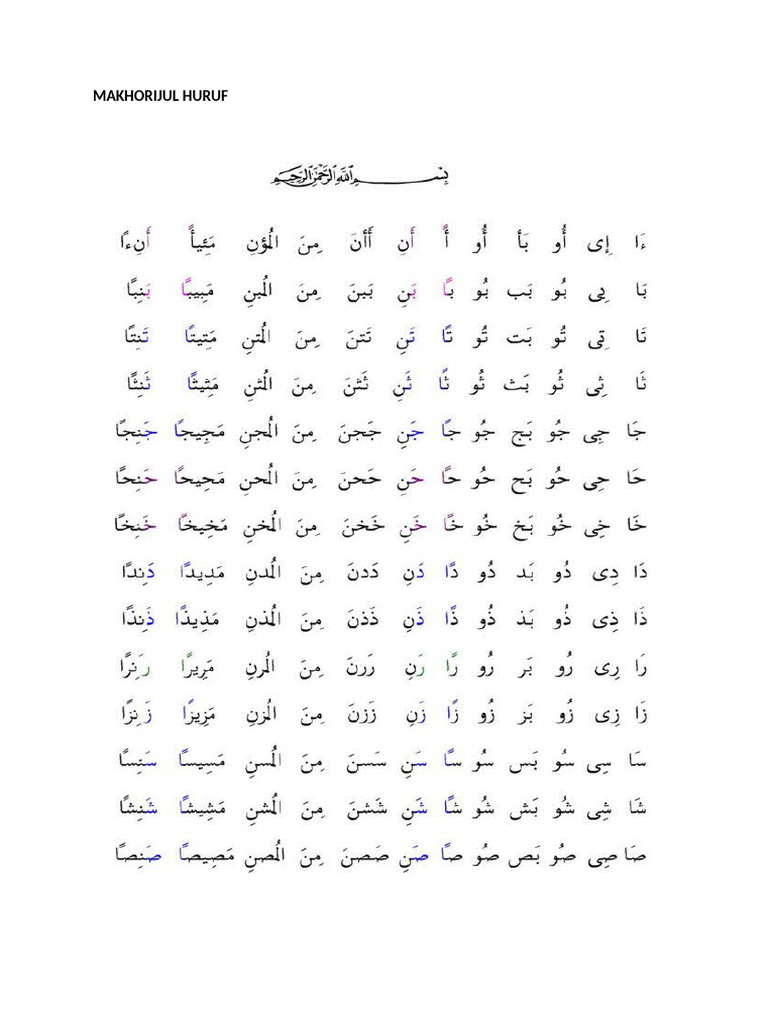 MAKHORIJUL HURUF
بِسْمِ اللَّهِ الرَّحْمَنِ الرَّحِيمِ
ءَا إِى أُو بَأ أُو أً أَنِ أَأنَ مِنَ الُمؤنِ مَئِيأً أَنِءًا
بَا بِى بُو بَب بُو بًا بَنِ بَببَنَ مِنَ الُمبنِ مَبِيبًا بَنِبًا
تَا تِى تُو بَت تُو تًا تَنِ تَتنَ مِنَ الُمتنِ مَتِيتًا تَنِتًا
ثَا ثِى ثُو بَث ثُو ثًا ثَنِ ثَثنَ مِنَ الُمثنِ مَثِيثًا ثَنِثًا
جَا جِى جُو بَج جُو جًا جَنِ جَجنَ مِنَ الُمجنِ مَجِيجًا جَنِجًا
حَا حِى حُو بَح حُو حًا حَنِ حَحنَ مِنَ الُمحنِ مَحِيحًا حَنِحًا
خَا خِى خُو بَخ خُو خًا خَنِ خَخنَ مِنَ الُمخنِ مَخِيخًا خَنِخًا
دَا دِى دُو بَد دُو دًا دَنِ دَدنَ مِنَ الُمدنِ مَدِيدًا دَنِدًا
ذَا ذِى ذُو بَذ ذُو ذًا ذَنِ ذَذنَ مِنَ الُمذنِ مَذِيذًا ذَنِذًا
رَا رِى رُو بَر رُو رًا رَنِ رَرنَ مِنَ الُمرنِ مَرِيرًا رَنِرًا
زَا زِى زُو بَز زُو زًا زَنِ زَزنَ مِنَ الُمزنِ مَزِيزًا زَنِزًا
سَا سِى سُو بَس سُو سًا سَنِ سَسنَ مِنَ الُمسنِ مَسِيسًا سَنِسًا
شَا شِى شُو بَش شُو شًا شَنِ شَشنَ مِنَ الُمشنِ مَشِيشًا شَنِشًا
صَا صِى صُو بَص صُو صًا صَنِ صَصنَ مِنَ الُمصنِ مَصِيصًا صَنِصًا